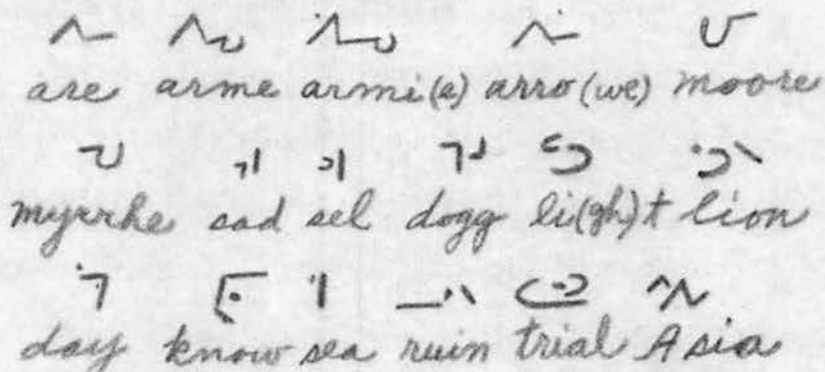 are arme armi(e) arro(we) moore
myrrhe sad sel dogg li(gh)t lion
day know sea ruin trial Asia